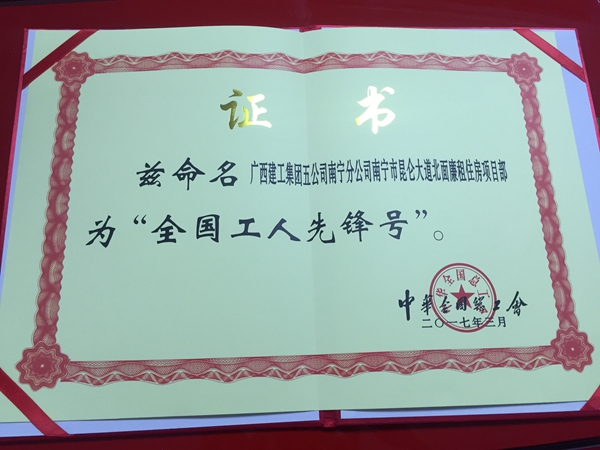 证 书
兹命名 广西建工集团五公司南宁分公司南宁市昆仑大道北面廉租住房项目部
为“全国工人先锋号”。
中华全国总工会
二〇一七年三月